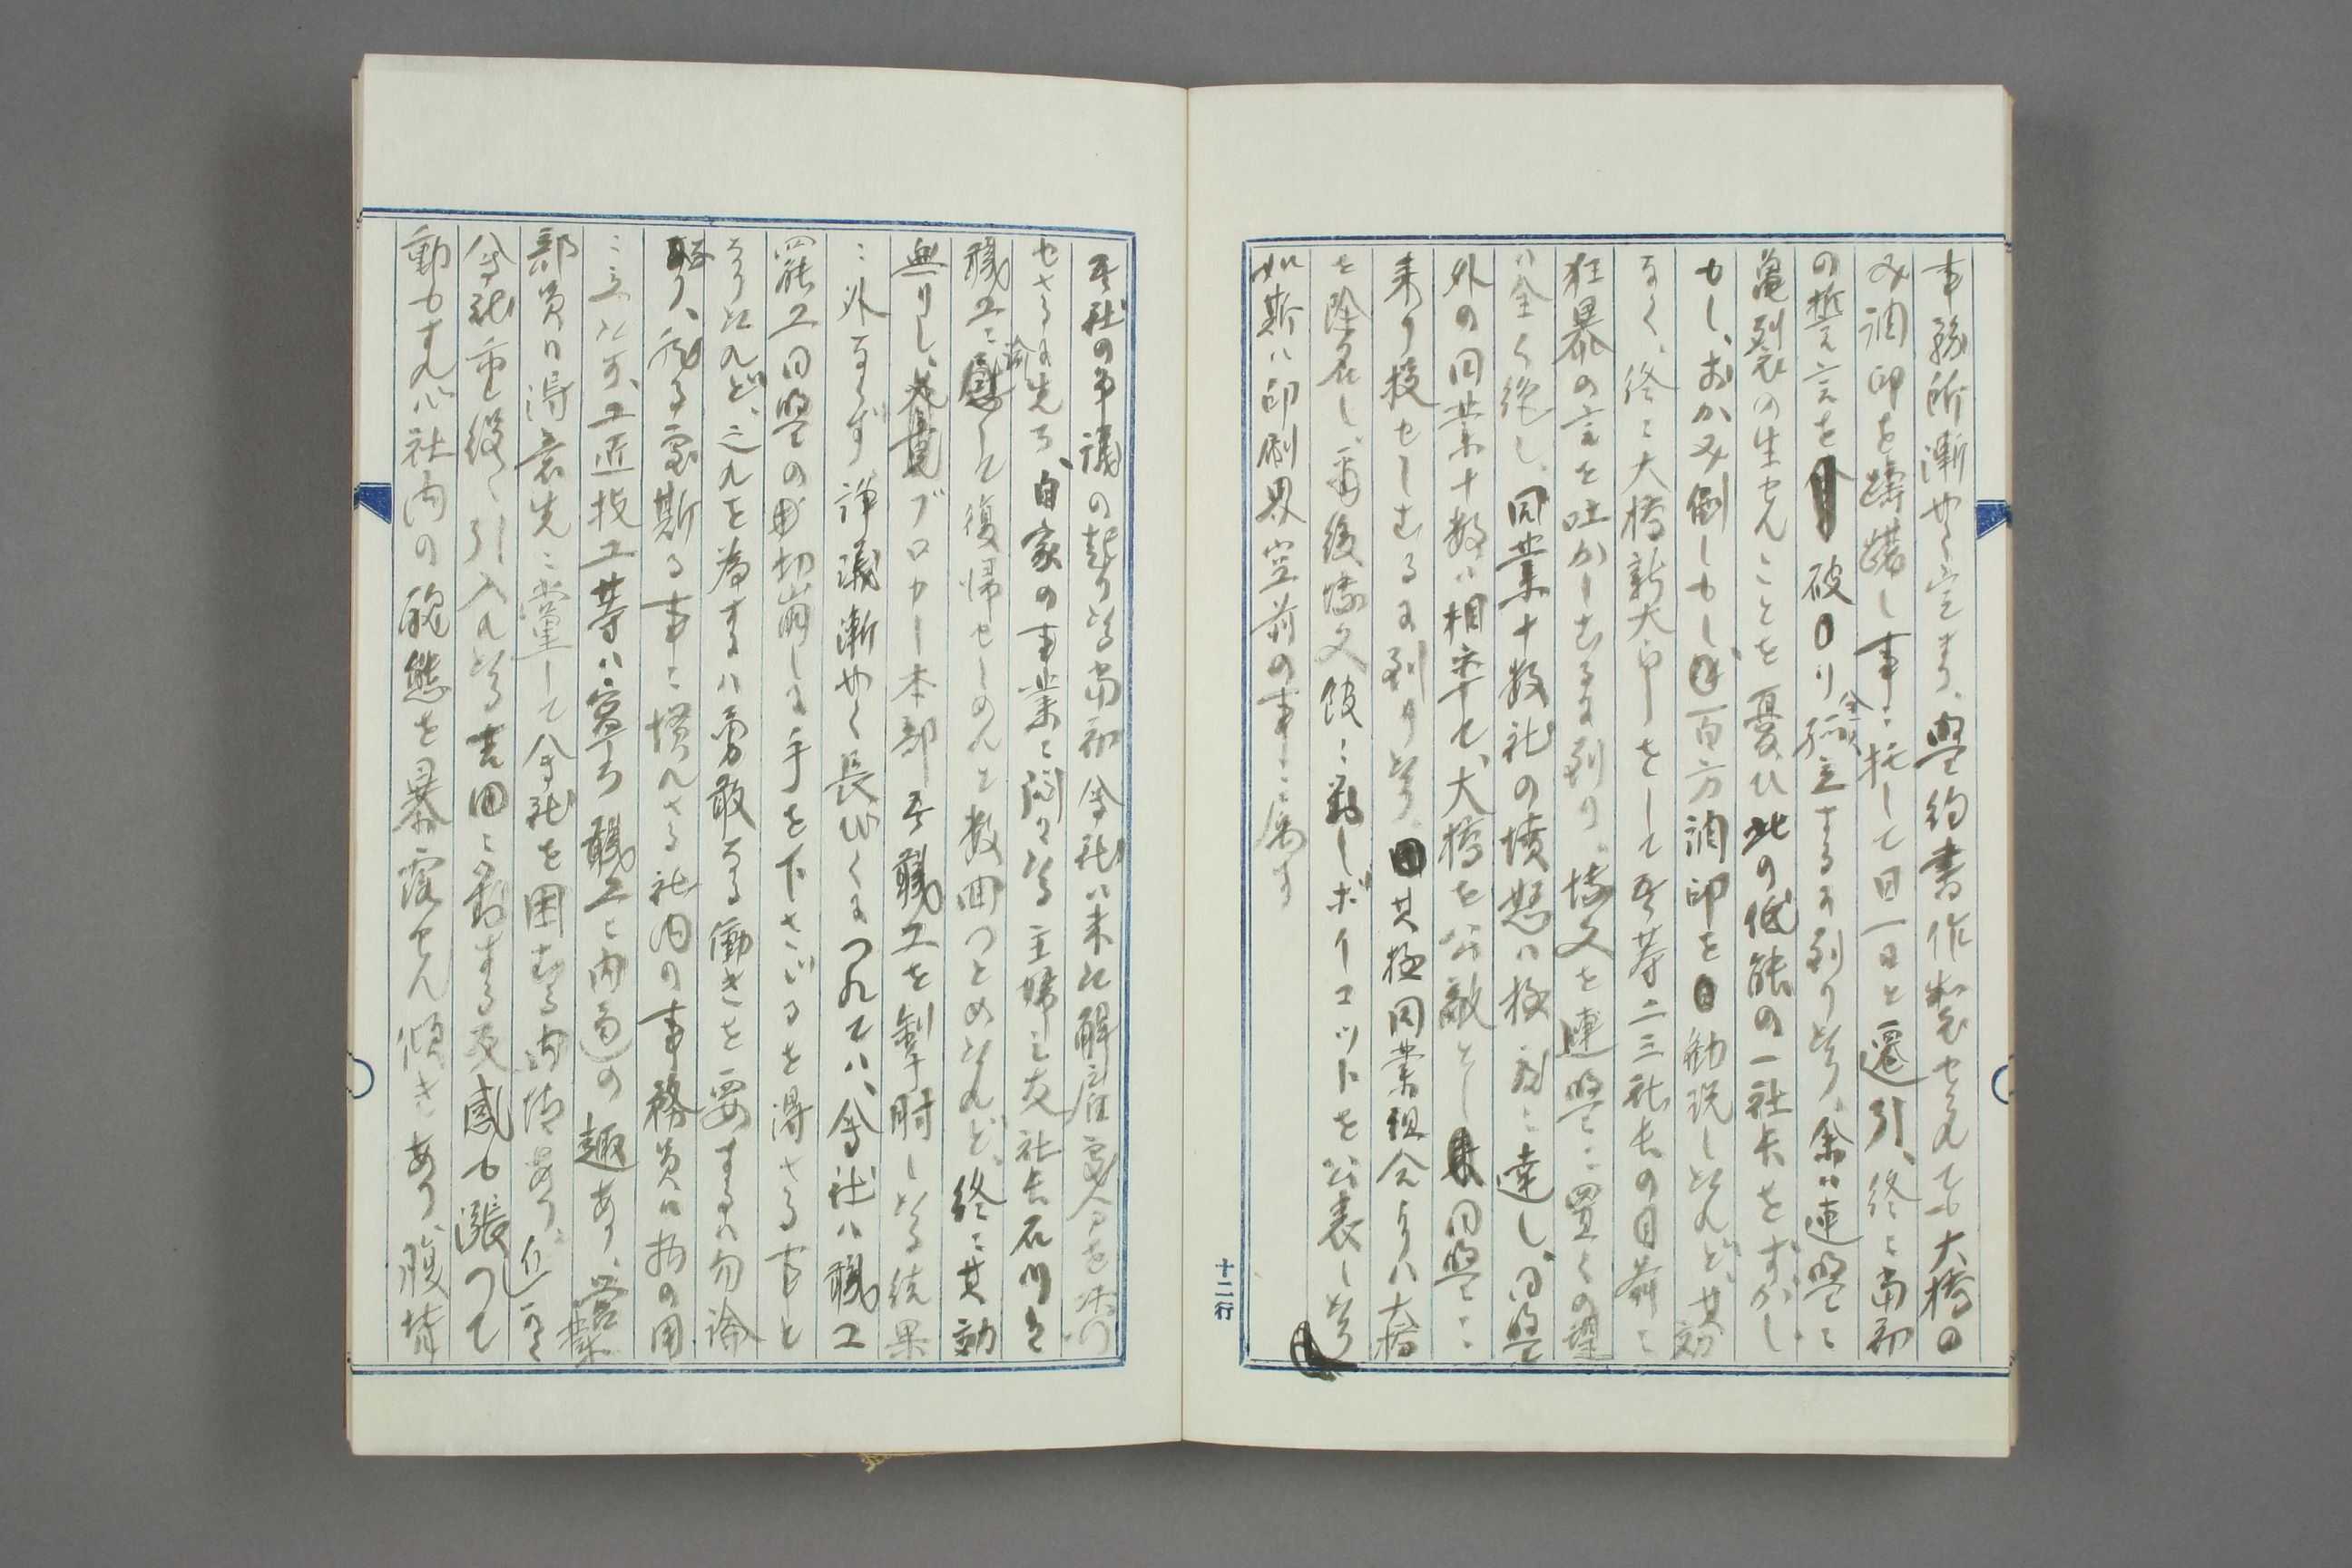 事務所漸やく定まり、盟約書作製せられても大橋の
み調印を躊躇し事ニ托して日一日と遷引、終ニ当初
の誓言を破り全然孤立するに到り候、余ハ連盟ニ
亀裂の生せんことを憂ひ此の低能の一社長をすかし
もし、おがみ倒しもし百方調印を勧説し候へど、其効
なく、終ニ大橋新太郎をして吾等二三社長の目前ニ
狂暴の言を吐かしむるに到り、博文を連盟ニ置くの望
ハ全く絶し、同業十数社の憤怒ハ極度ニ達し、同盟
外の同業十数ハ相率て、大橋を公敵とし同盟ニ
来り投せしむるに到り候、其極同業組合よりハ大橋
を除名し、爾後博文館ニ対しボイコットを公表し候
如斯ハ印刷界空前の事ニ属す
十二行
吾社の争議の起り候当初会社ハ未た解雇命を決行
せさるに先ち、自家の事業ニ関する主婦之友社長石川君
職工ニ諭して復帰せしめんと数回つとめ候へど、終ニ其効
無りし、ブローカー本部吾職工を掣肘し候結果
ニ外ならず 諍議漸やく長びくにつれてハ、会社ハ職工
罷工同盟の切崩しに手を下さゞるを得さる事と
なり候へど、之れを為すハ勇敢なる働きを要するハ勿論
なり、然る處斯る事ニ慣れさる社内の事務員ハ物の用
ニ立たず、工匠技工等ハ寧ろ職工と内通の趣あり、営業
部員ハ得意先ニ党して会社を困むる内情あり、近ごろ
会社重役ニ引入れ候吉田ニ対する反感も漲つて
動もすれハ社内の醜態を暴露せん傾きあり、腹背